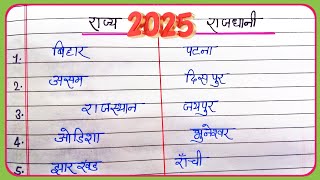 राज्य 2025 राजधानी
1. बिहार पटना
2. असम दिसपुर
3. राजस्थान जयपुर
4. ओडिशा भुनेश्वर
5. झारखंड राँची